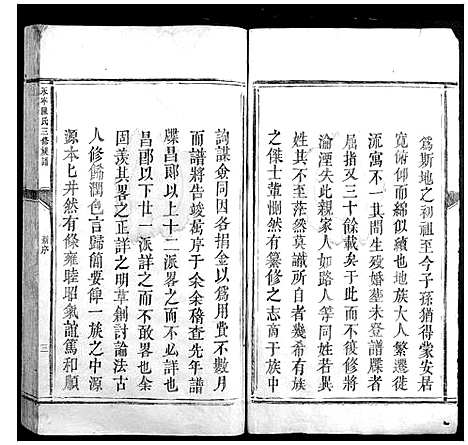 為斯地之初祖至今子孫猶得蒙安居
寬俯仰而綿似續也地族大人繁遷徙
流寓不一其間生歿婚塟未登譜牒者
屈指又三十餘載矣于此而不復修將
淪湮失此親家人如路人等同姓若異
姓其不至茫然莫識所自者幾希有族
之傑士輩惻然有纂修之志商于族中
詢謀僉同因各捐金以爲用費不數月
而譜將告竣喬序于余余稽查先年譜
牒昌郎以上十二派畧之而不必詳也
昌郎以下廿一派詳之而不敢畧也余
因羨其畧之正詳之明草創討論法古
人修飾潤色言歸簡要俾一族之中源
源本七井然有條雍睦昭氣誼篤和順
永寧陳氏三修族譜
新序
三